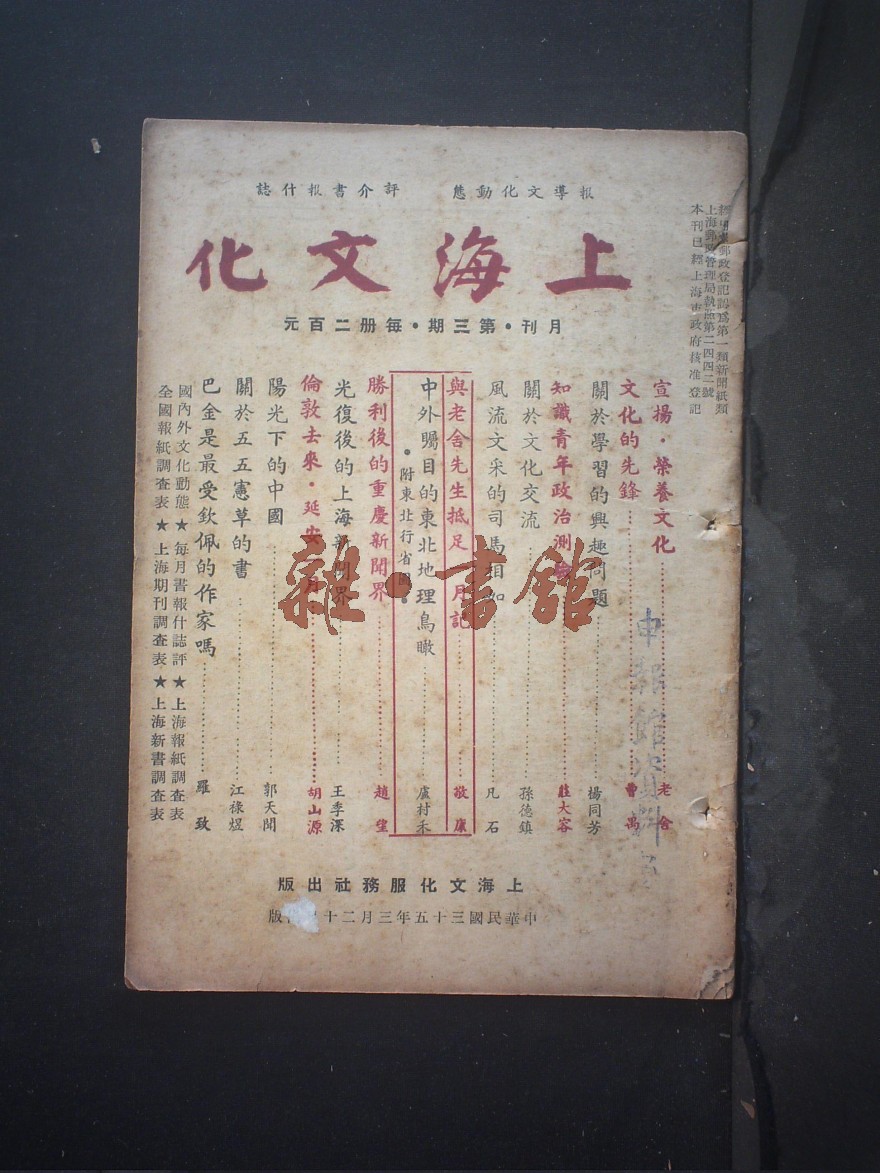 報導文化動態 評介書報什誌
上海文化
月刊·第三期·每册二百元
郵政登記認爲第一類新聞紙類
上海郵政管理局執照第二四四二號
本刊已經上海市政府核准登記
宣揚·榮養文化 老舍
文化的先鋒 曹禺
關於學習的興趣問題 楊同芳
知識青年政治測驗 莊大容
關於文化交流 孫德鎮
風流文采的司馬相如 凡石
與老舍先生抵足 月記 敬康
中外矚目的東北地理鳥瞰 盧村禾
·附東北行省圖·
勝利後的重慶新聞界 趙望
光復後的上海新聞界 王季深
倫敦去來·延安 月 胡山源
陽光下的中國 郭天聞
關於五五憲草的書 江祿煜
巴金是最受欽佩的作家嗎 羅致
國內外文化動態★每月書報什誌評★上海報紙調查表
全國報紙調查表★上海期刊調查表★上海新書調查表
雜·書館
申報館資料
上海文化服務社出版
中華民國三十五年三月二十 版